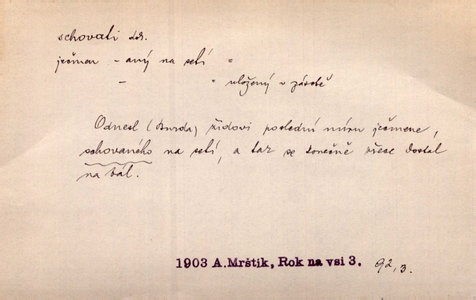 schovati dok.
ječmen - aný na setí "
- " uložený v zásobě
Odnesl (Burda) židovi poslední míru ječmene,
schovaného na setí, a tak se konečně přece dostal
na bál.
1903 A. Mrštík, Rok na vsi 3. 92,3.